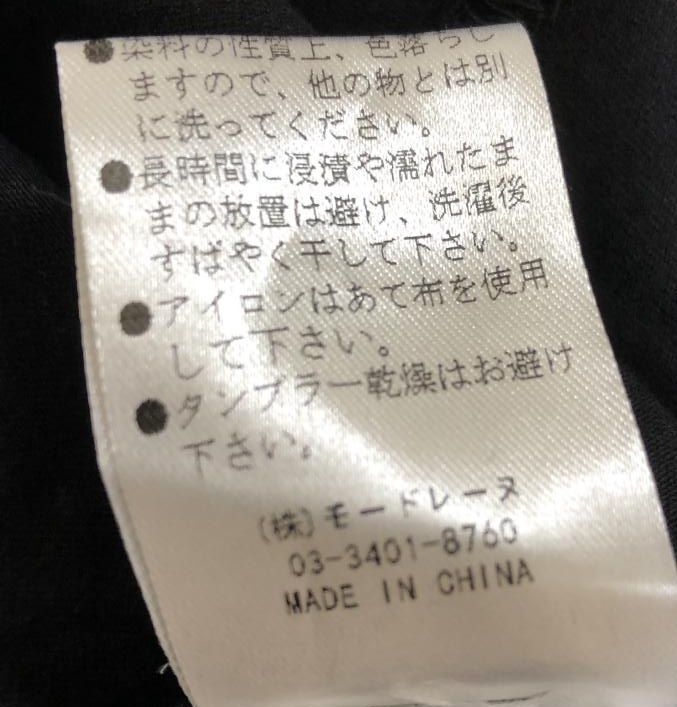 ●染料の性質上、色落ちし
ますので、他の物とは別
に洗ってください。
●長時間に浸漬や濡れたま
まの放置は避け、洗濯後
すばやく干して下さい。
●アイロンはあて布を使用
して下さい。
●タンブラー乾燥はお避け
下さい。
(株)モードレーヌ
03-3401-8760
MADE IN CHINA